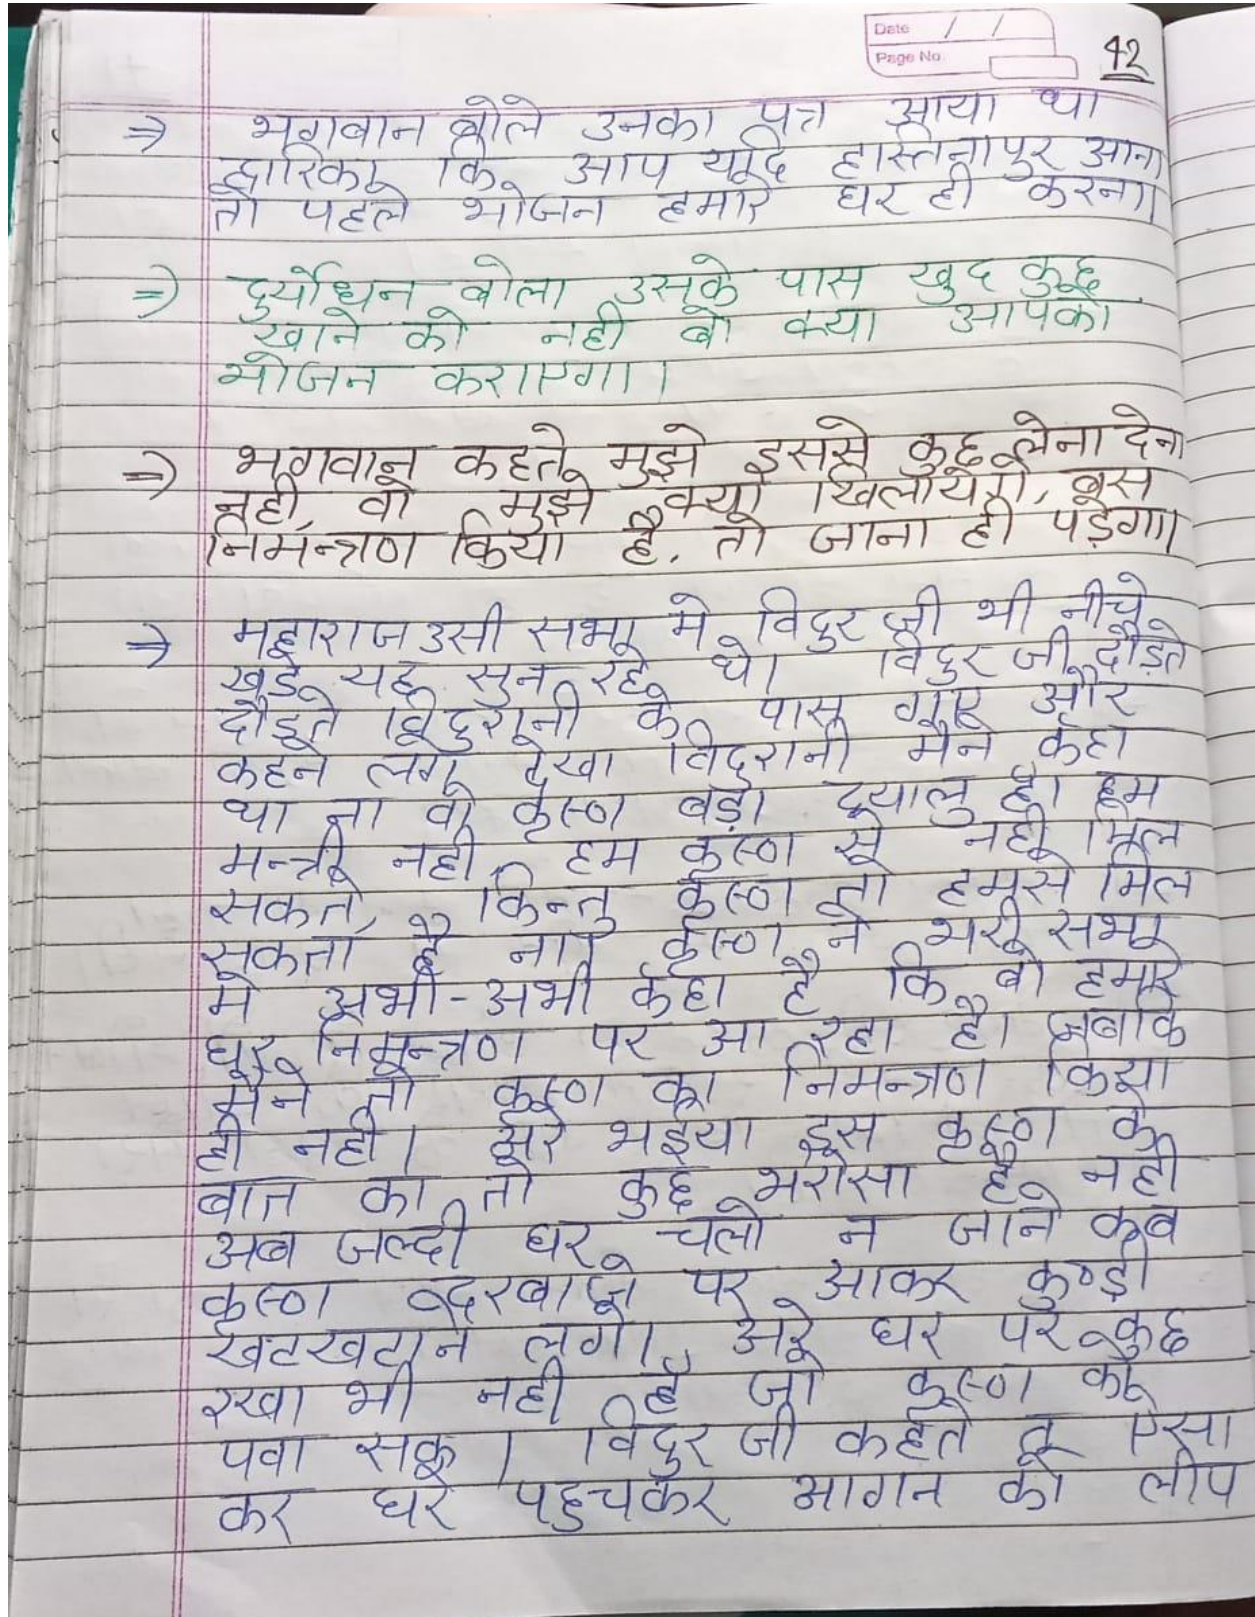 Date / /
Page No
42
⇒ भगवान बोले उनका पत्र आया था
द्वारिका कि आप यदि हस्तिनापुर आना
तो पहले भोजन हमारे घर ही करना।
⇒ दुर्योधन बोला उसके पास खुद कुछ
खाने को नही वो क्या आपको
भोजन कराएगा।
⇒ भगवान कहते मुझे इससे कुछ लेना देना
नही, वो मुझे क्या खिलायेगे, बस
निमन्त्रण किया है, तो जाना ही पड़ेगा।
⇒ महाराज उसी सभा मे विदुर जी भी नीचे
खडे यह सुन रहे थे। विदुर जी दौड़ते
दौड़ते विदुरानी के पास गए और
कहने लगे देखा विदुरानी मैने कहा
था ना वो कृष्ण बड़ा दयालु है। हम
मन्त्री नही, हम कृष्ण से नही मिल
सकते, किन्तु कृष्ण तो हमसे मिल
सकता है ना। कृष्ण ने भरी सभा
मे अभी-अभी कहा है कि वो हमारे
घर निमन्त्रण पर आ रहा है। जबकि
मैने तो कृष्ण का निमन्त्रण किया
ही नही। अरे भईया इस कृष्ण के
बात का तो कुछ भरोसा है नही
अब जल्दी घर चलो न जाने कब
कृष्ण दरबाजे पर आकर कुण्ड़ी
खटखटाने लगे। अरे घर पर कुछ
रखा भी नही है जो कृष्ण को
पवा सकू। विदुर जी कहते तू एसा
कर घर पहुचकर आगन को लीप